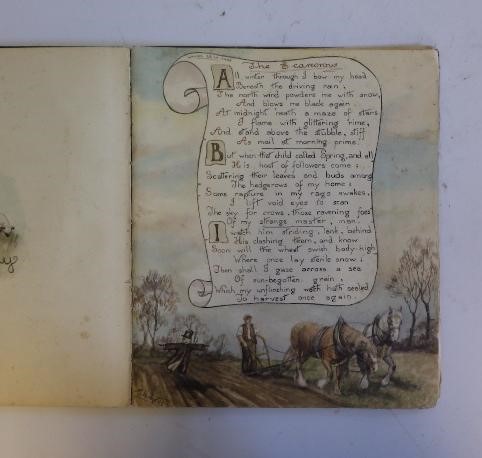 The Scarecrow
All winter through I bow my head
Beneath the driving rain;
The north wind powders me with snow
And blows me black again.
At midnight neath a maze of stars
I flame with glittering rime,
And stand above the stubble, stiff
As mail at morning prime.
But when that child called Spring, and all
His host of followers come;
Scattering their leaves and buds among
The hedgerows of my home;
Some rapture in my rags awakes,
I lift void eyes to scan
The sky for crows, those ravening foes
Of my strange master, man.
I watch him striding, lank, behind
His clashing team, and know
Soon will the wheat swish body-high
Where once lay sterile snow;
Then shall I gaze across a sea
Of sun-begotten grain;
Which my unflinching watch hath sealed
To harvest once again.